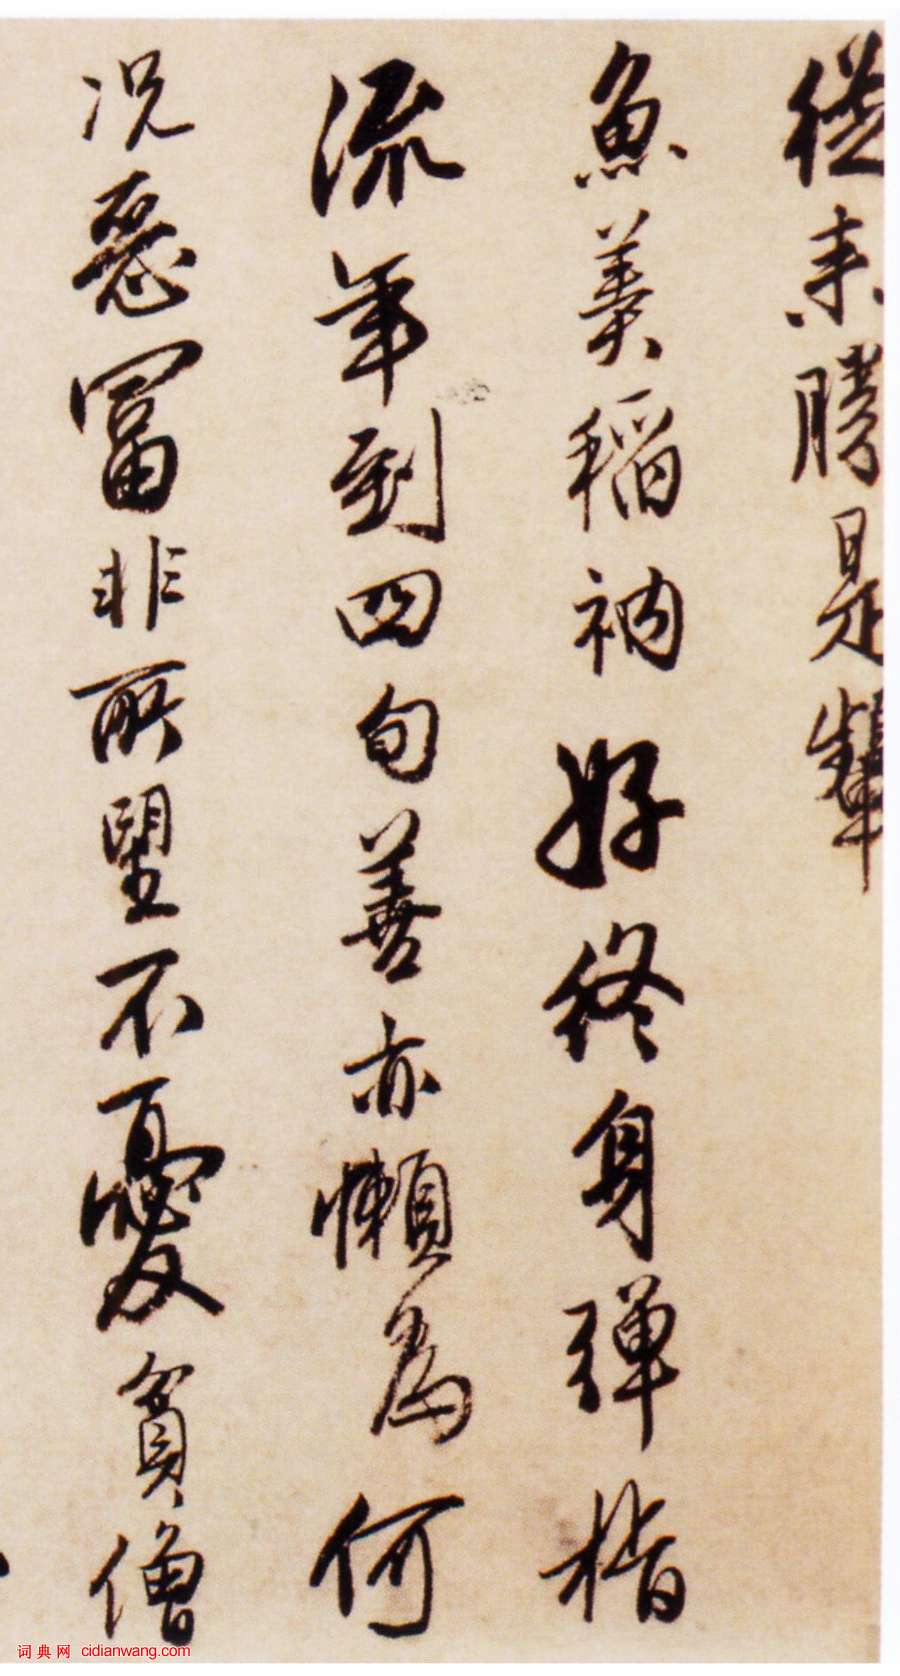 從来勝是韡
魚羹稻衲好終身彈指
流年到四旬善亦懶為何
况惡冨非所望不憂貧僧
词典网 cidianwang.com